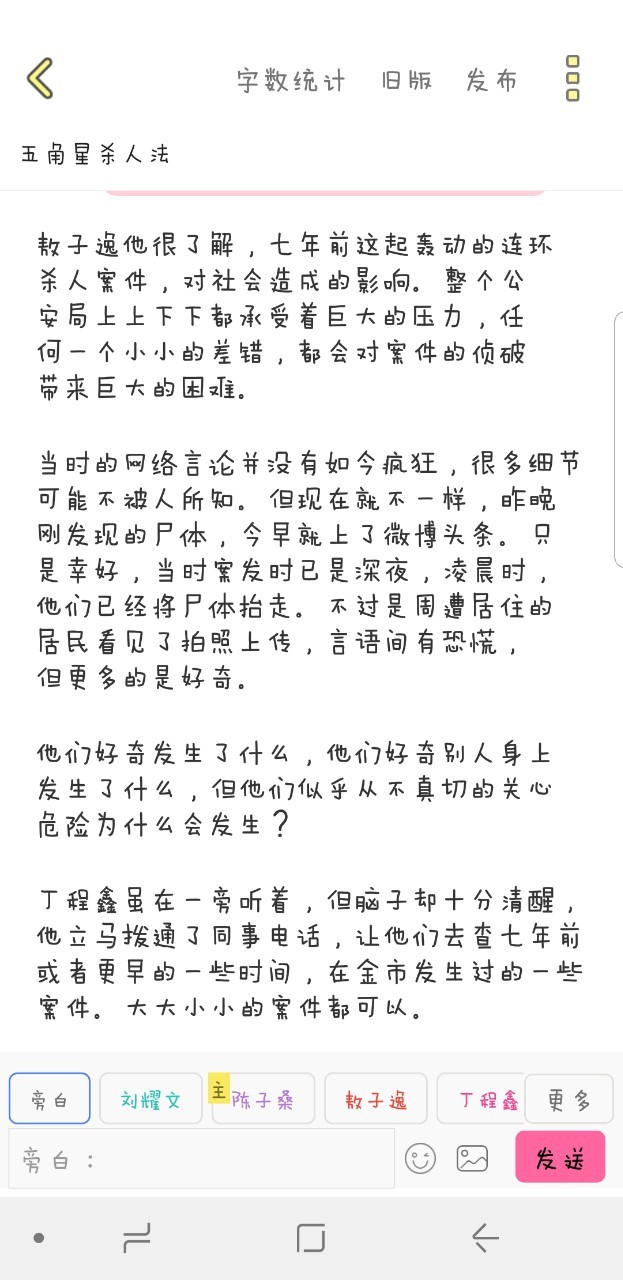 字数统计 旧版 发布
五角星杀人法
敖子逸他很了解，七年前这起轰动的连环
杀人案件，对社会造成的影响。整个公
安局上上下下都承受着巨大的压力，任
何一个小小的差错，都会对案件的侦破
带来巨大的困难。
当时的网络言论并没有如今疯狂，很多细节
可能不被人所知。但现在就不一样，昨晚
刚发现的尸体，今早就上了微博头条。只
是幸好，当时案发时已是深夜，凌晨时，
他们已经将尸体抬走。不过是周遭居住的
居民看见了拍照上传，言语间有恐慌，
但更多的是好奇。
他们好奇发生了什么，他们好奇别人身上
发生了什么，但他们似乎从不真切的关心
危险为什么会发生？
丁程鑫虽在一旁听着，但脑子却十分清醒，
他立马拨通了同事电话，让他们去查七年前
或者更早的一些时间，在金市发生过的一些
案件。大大小小的案件都可以。
旁白 刘耀文 主 陈子桑 敖子逸 丁程鑫 更多
旁白： 发送